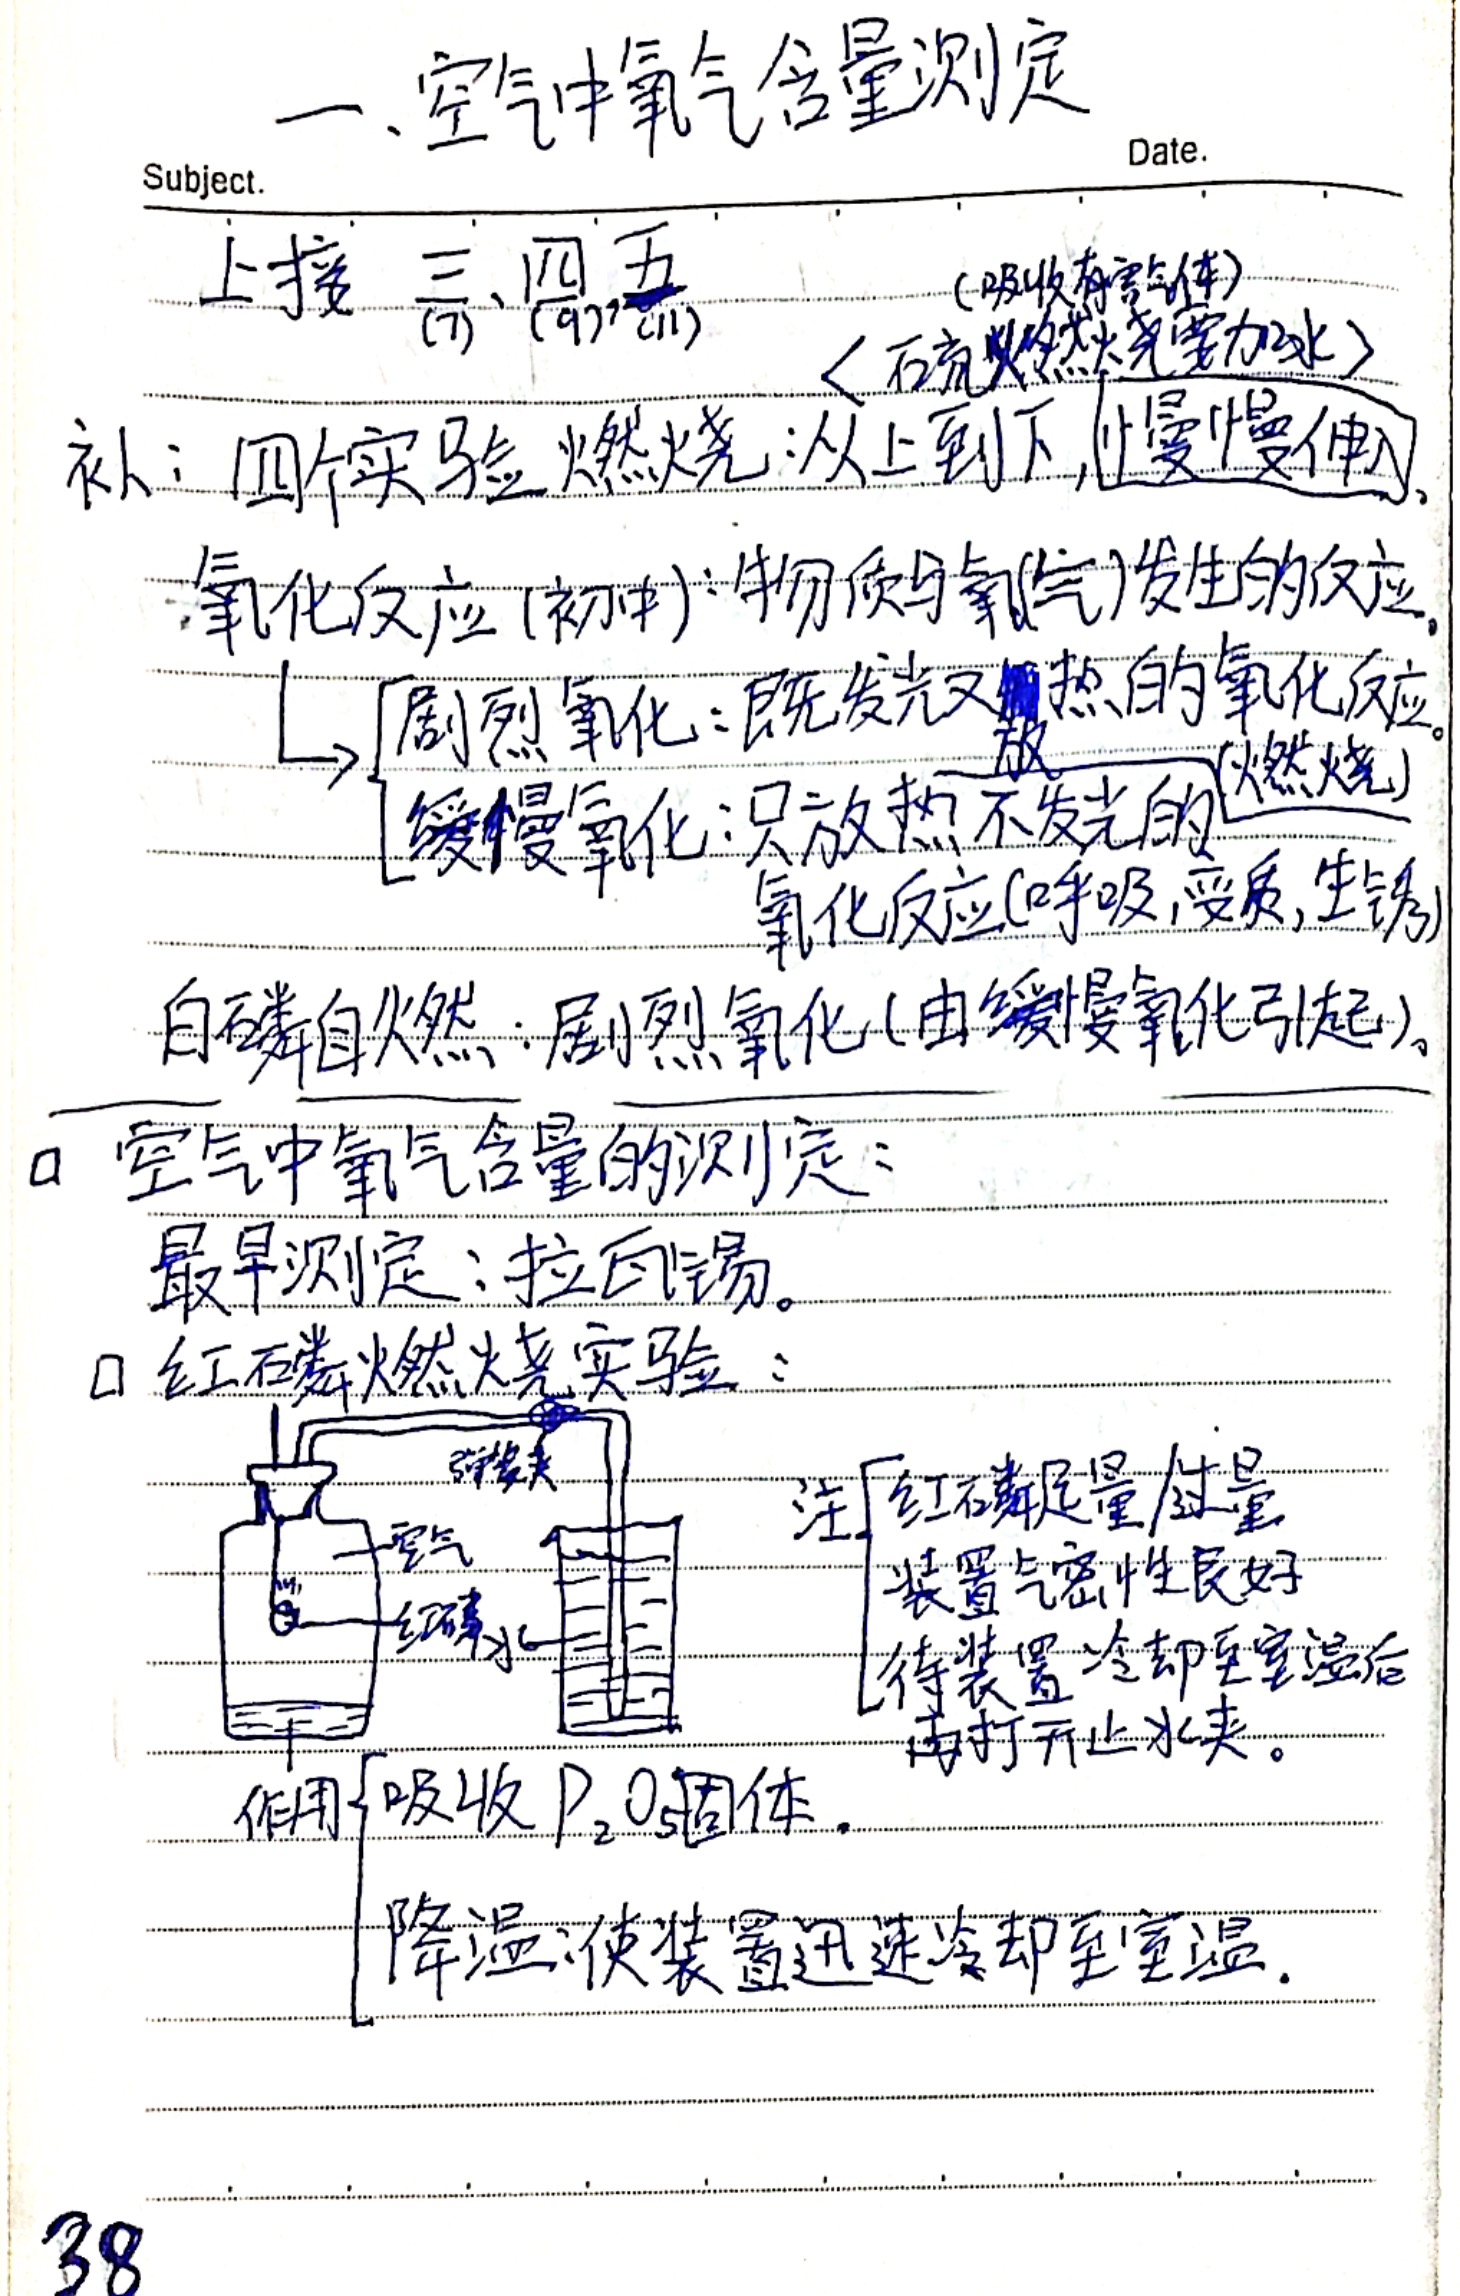 一、空气中氧气含量测定
Subject.
Date.
上接 三、四、五
(7) (9) (11)
(吸收有害气体)
〈硫燃烧要加水〉
补：四个实验燃烧：从上到下，慢慢伸入。
氧化反应(初中)：物质与氧(气)发生的反应。
剧烈氧化：既发光又放热的氧化反应。
(燃烧)
缓慢氧化：只放热不发光的
氧化反应(呼吸,变质,生锈)
白磷自燃：剧烈氧化(由缓慢氧化引起)。
空气中氧气含量的测定：
最早测定：拉瓦锡。
红磷燃烧实验：
弹簧夹
空气
红磷
水
注 红磷足量/过量
装置气密性良好
待装置冷却至室温后
再打开止水夹。
作用 吸收P₂O₅固体.
降温：使装置迅速冷却至室温.
38